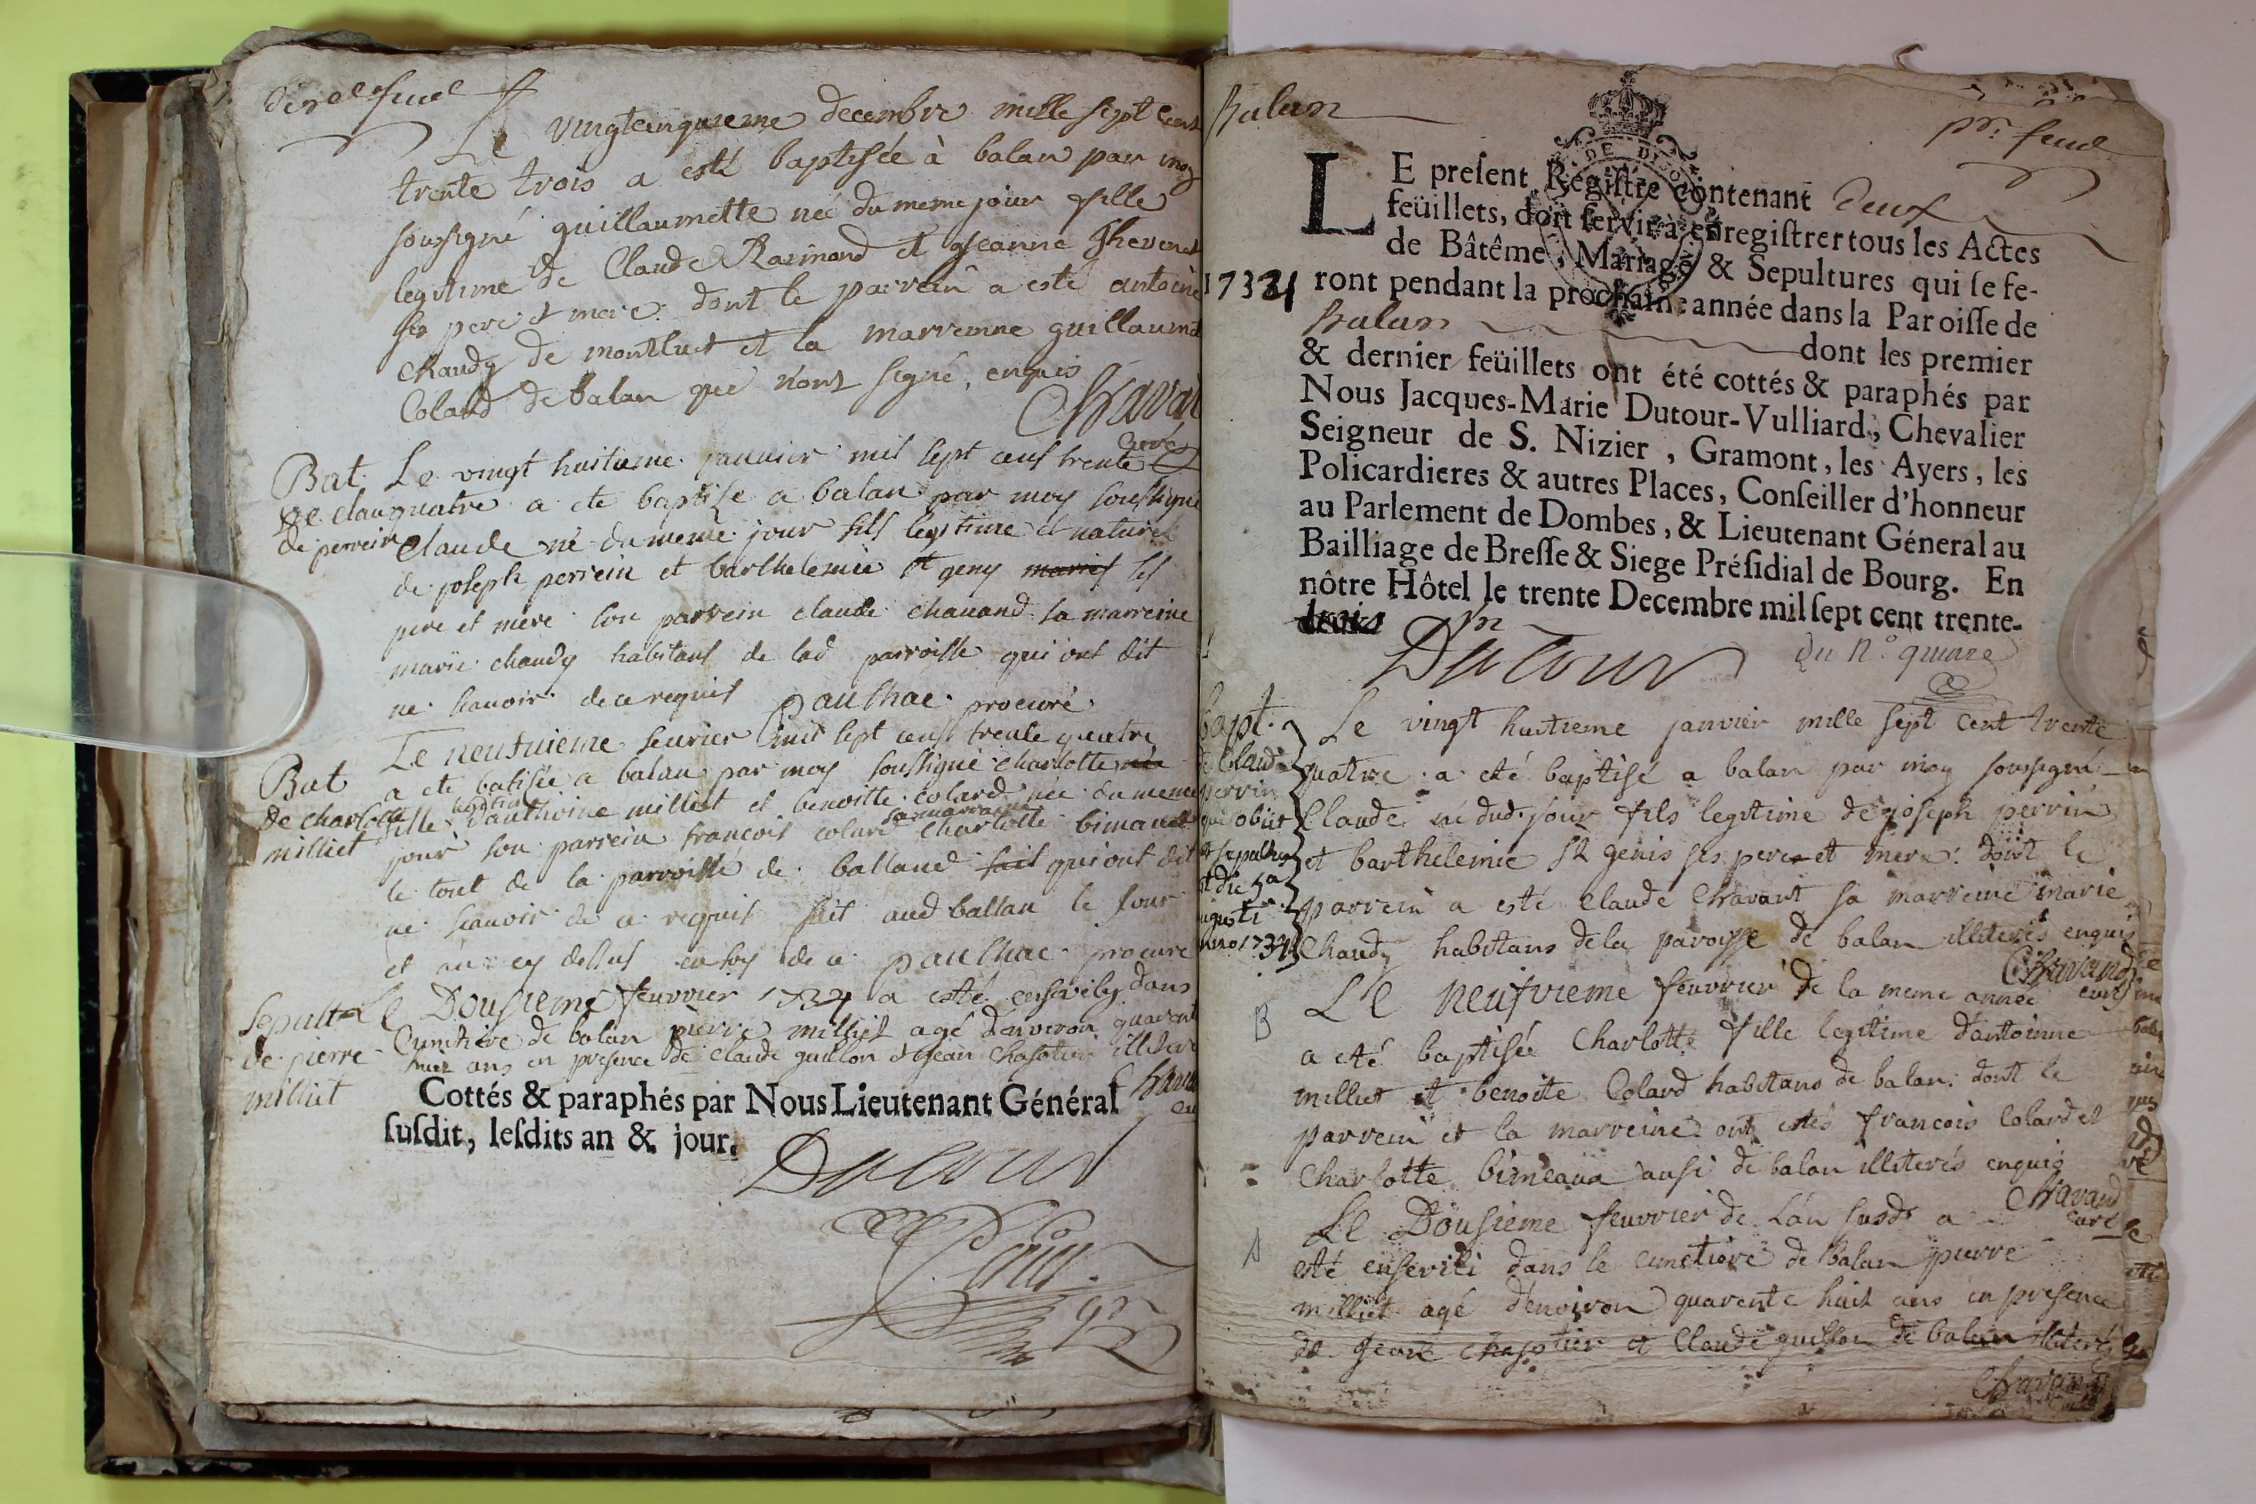 Le vingtcinquieme decembre mille sept Cent
trente trois a esté baptisée à balan par moy
soussigné guillaumette née du meme jour fille
legitime de Claude Raimond et jeanne Thevenet
ses pere et mere: dont le parrein a esté antoine
Chaudy de montluet et la marrenne guillaume
Colard de balan qui n'ont signé, enquis
Chavan
Curé
Bat. Le vingt huitieme janvier mil sept cens trente
de Clau quatre a ete baptise a balan par moy soussigne
de perrein Claude né du meme jour fils legitime et naturel
de joseph perrein et barthelemie st geny maries ses
pere et mere son parrein claude chauand sa marreine
marie chaudy habitans de lad parroisse qui ont dit
ne scauoir de ce requis Paulhac procuré
Le neufuieme feurier mil sept cens trente quatre
Bat a ete batisée a balan par moy soussigné charlotte née
de charlotte fille legitime d'anthoine milliet et benoitte colard née du meme
milliet jour son parrein francois colard sa marraine Charlotte bimaud
le tout de la parroisse de balland fait qui ont dit
ne scauoir de ce requis fait aud ballan le jour
et an cy dessus en foy de ce paulhac procuré
Sepult Le Dousieme feuvrier 1734 a esté enseveliy dans
Cumitiere de balan pierre milliet agé d'environ quarent
de pierre huit ans en presence de Claude guillon et jean Chasotier illitere
milliet
Chavan
Cottés & paraphés par Nous Lieutenant Général
susdit, lesdits an & jour.
Dutour
Balan
pr. feuil
LE present Registre contenant deux
feüillets, doit servir à enregistrer tous les Actes
de Bâtême, Mariage & Sepultures qui se fe-
1734 ront pendant la prochaine année dans la Paroisse de
Balan dont les premier
& dernier feüillets ont été cottés & paraphés par
Nous Jacques-Marie Dutour-Vulliard, Chevalier
Seigneur de S. Nizier, Gramont, les Ayers, les
Policardieres & autres Places, Conseiller d'honneur
au Parlement de Dombes, & Lieutenant Géneral au
Bailliage de Bresse & Siege Présidial de Bourg. En
nôtre Hôtel le trente Decembre mil sept cent trente-
trois
Dutour
du n.º quinze
bapt. Le vingt huitieme janvier mille sept cent trente
de Claude quatre a eté baptisé a balan par moy soussigné
perrin Claude né dud. jour fils legitime de joseph perrin
qui obiit et barthelemie st genis ses pere et mere: dont le
et sepultus parrein a esté Claude Chavant sa marreine marie
est die 5a
augusti Chaudy habitans de la paroisse de balan illiterés enquis
anno 1734
Chavand
curé
B Le neufvieme feuvrier de la meme année
a eté baptisée Charlotte fille legitime d'antoinne
milliet et benoite Colard habitans de balan: dont le
parrein et la marreine ont estés francois Colard et
Charlotte bimeaux ausi de balan illiterés enquis
Chavand
curé
Le Dousieme feuvrier de l'an susdt a
esté enseveli dans le cimetiere de balan pierre
milliet agé d'environ quarente huit ans en presence
de jean Chasotier et Claude guillon de balan illiterés
Chavand